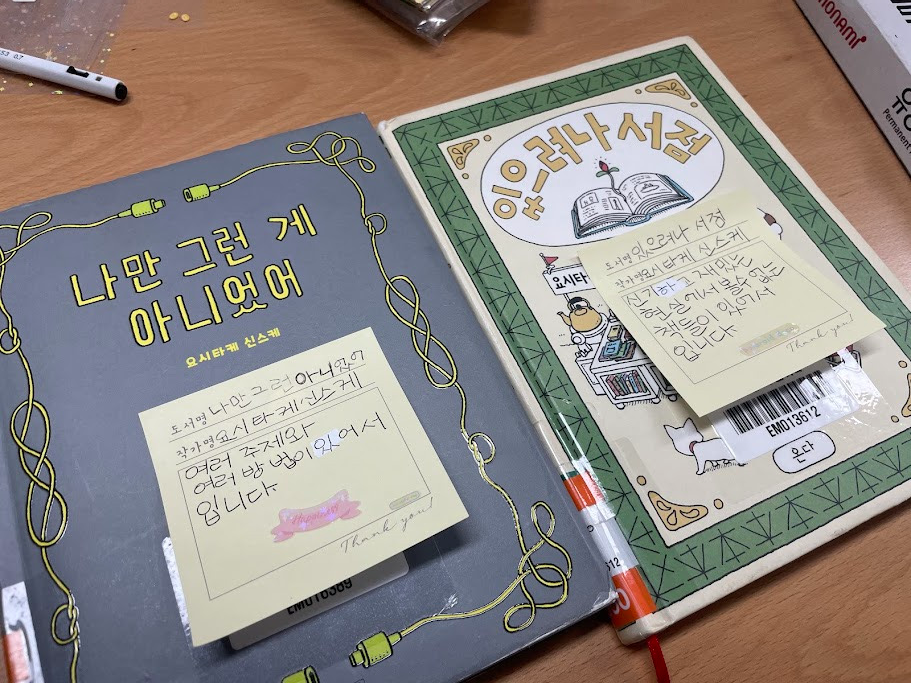 나만 그런 게
아니었어
요시타케 신스케
도서명 나만 그런 아니었어
작가명 요시타케 신스케
여러 주제와
여러 방법이 있어서
입니다.
Thank you!
EM016389
있으려나 서점
요시타
도서명 있으려나 서점
작가명 요시타케 신스케
신기하고 재밌는
현실에서 볼 수 없는
것들이 있어서
입니다
Thank you!
EM013612
온다
012
CO
53 0.7
MONAMI
유성
Permanent